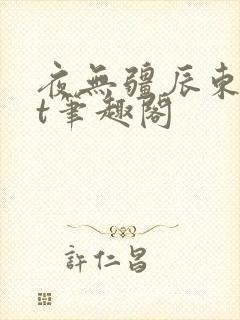 夜無疆辰東
t筆趣閣
許仁昌